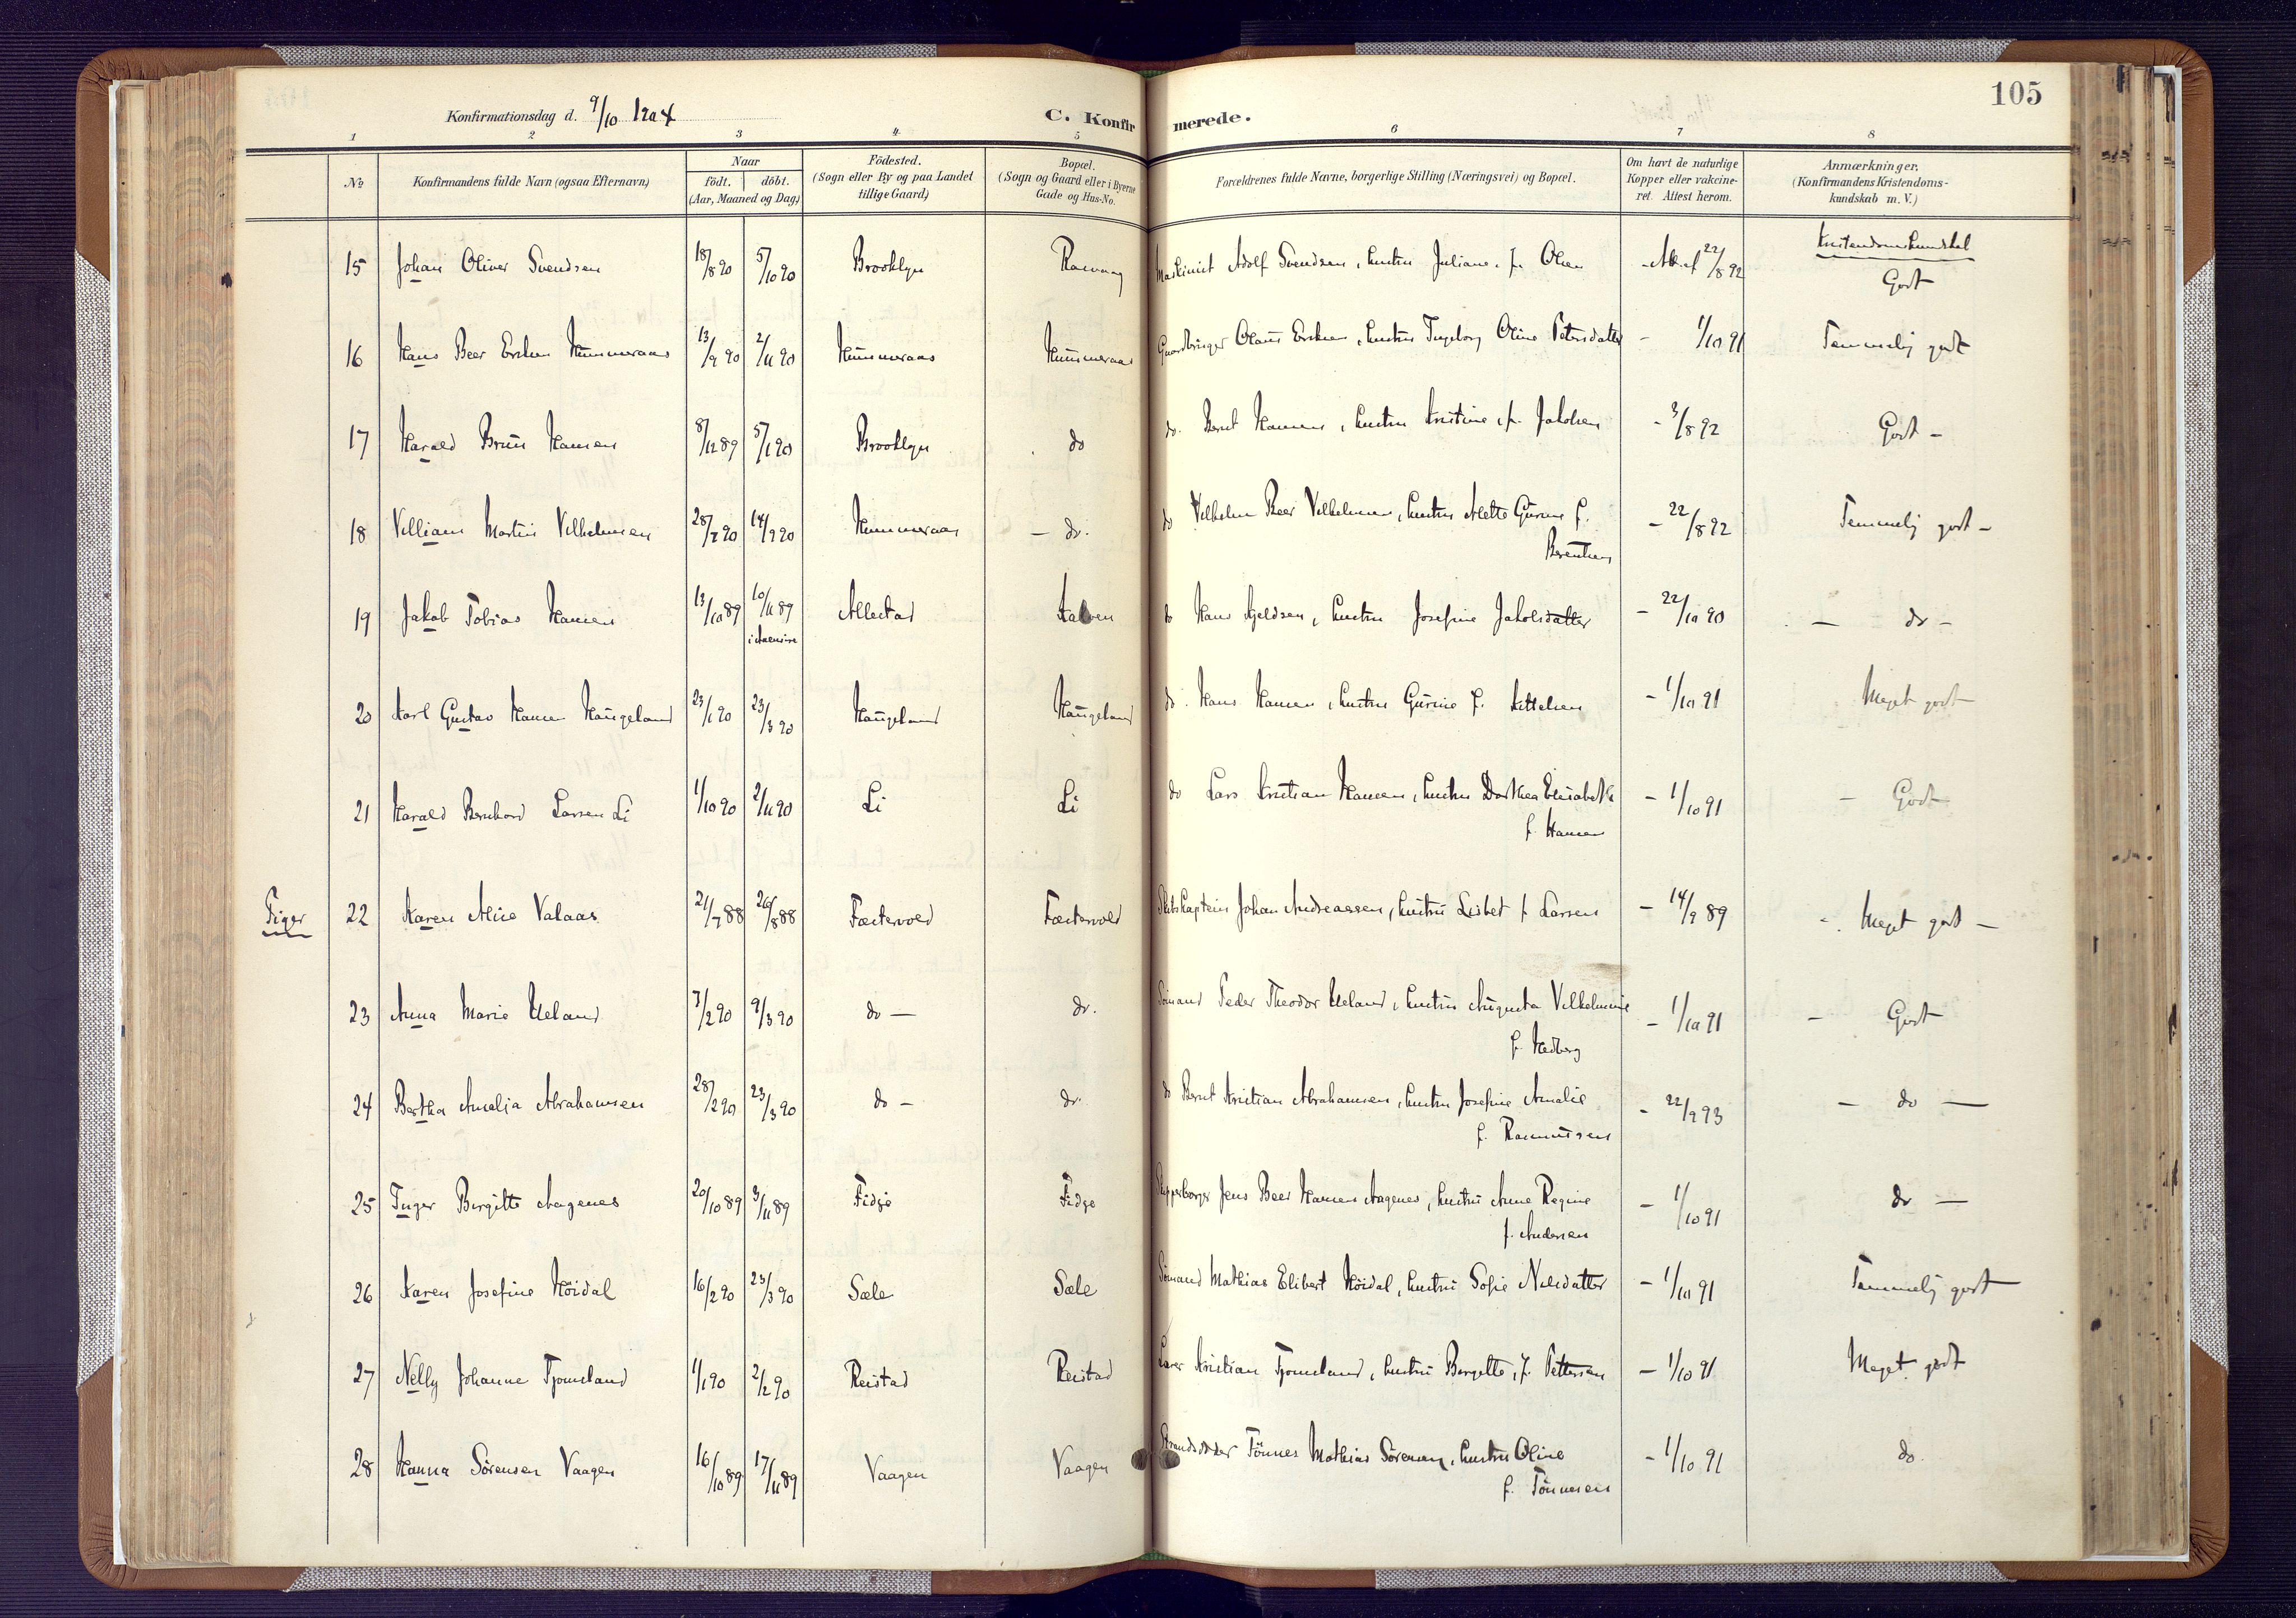 105
Konfirmationsdag d. 9/10 1904
C. Konfirmerede.
1 2 3 4 5 6 7 8
No
Konfirmandens fulde Navn (ogsaa Efternavn)
Naar
födt. döbt.
(Aar, Maaned og Dag)
Födested.
(Sogn eller By og paa Landet
tillige Gaard)
Bopæl.
(Sogn og Gaard eller i Byerne
Gade og Hus-No.
Forældrenes fulde Navne, borgerlige Stilling (Næringsvei) og Bopæl.
Om havt de naturlige
Kopper eller vakcine-
ret. Attest herom.
Anmærkninger,
(Konfirmandens Kristendoms-
kundskab m. V.)
Kristendomskundskab
15 Johan Oliver Svendsen 18/8 90 5/10 90 Brooklyn Maskinist Adolf Svendsen, hustru Juliane f. Olsen 22/8 92 Godt
16 Hans Beer Hummeraas 13/9 90 2/11 90 Hummeraas Hummeraas Gaardbruger Olaus hustru Ingeborg Oline Petersdatter - 1/10 91 Temmelig godt
17 Harald Bruun Hansen 8/12 89 5/1 90 Brooklyn do do. Bernt Hansen, hustru Kristine f. Jakobsen - 3/8 92 Godt -
18 Villiam Martin Vilhelmsen 28/7 90 14/9 90 Hummeraas - do. do Vilhelm Beer Vilhelmsen, hustru Mette Gurine f.
Berentsen - 22/8 92 Temmelig godt -
19 Jakob Tobias Hansen 13/10 89 10/11 89 Allestad do Hans Kjeldsen, hustru Josefine Jakobsdatter - 22/10 90 - do -
20 Karl Gustav Hansen Haugeland 23/1 90 23/3 90 Haugeland Haugeland do. Hans Hansen, hustru Gurine f. Kittelsen - 1/10 91 Meget godt
21 Harald Bernhard Larsen Li 1/10 90 2/11 90 Li Li do Lars Kristian Hansen, hustru Dorthea Elisabeth
f. Hansen - 1/10 91 - Godt
Piger
22 Karen Alice Valaas 21/7 88 26/8 88 Fæstervold Fæstervold Skibskaptein Johan Andreassen, hustru Lisbet f. Larsen - 14/9 89 - Meget godt -
23 Anna Marie Ueland 7/2 90 9/3 90 do - do. Sømand Peder Theodor Ueland, hustru Augusta Vilhelmine
f. Hedberg - 1/10 91 - Godt
24 Bertha Amalia Abrahamsen 28/2 90 23/3 90 do - do do Bernt Kristian Abrahamsen, hustru Josefine Amalie
f. Rasmussen - 22/9 93 - do -
25 Inger Birgitte Aagenes 20/10 89 3/11 89 Fidje Fidje Skipperborger Jens Beer Hansen Aagenes, hustru Anne Regine
f. Andersen - 1/10 91 do -
26 Karen Josefine Höidal 16/2 90 23/3 90 Sæle Sæle Sømand Mathias Elibert Höidal, hustru Sofie Nilsdatter - 1/10 91 Temmelig godt
27 Nelly Johanne Tjomsland 1/1 90 2/2 90 Reistad Reistad Lærer Kristian Tjomsland, hustru Birgitte, f. Pettersen - 1/10 91 Meget godt
28 Hanna Sörensen Vaagen 16/10 89 17/11 89 Vaagen Vaagen Strandsidder Tönnes Mathias Sörensen, hustru Oline
f. Tönnesen - 1/10 91 do.